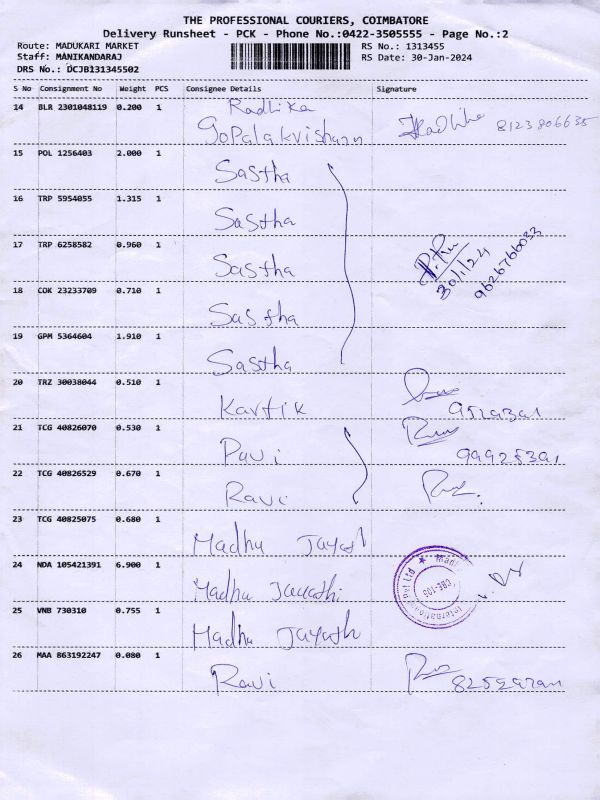 THE PROFESSIONAL COURIERS, COIMBATORE
Delivery Runsheet - PCK - Phone No.:0422-3505555 - Page No.:2
Route: MADUKARI MARKET
Staff: MANIKANDARAJ
DRS No.: DCJB131345502
RS No.: 1313455
RS Date: 30-Jan-2024
S No Consignment No Weight PCS Consignee Details Signature
14 BLR 2301048119 0.200 1 Radhika
Gopalakrishann 8123806635
15 POL 1256403 2.000 1 Sastha
16 TRP 5954055 1.315 1 Sastha
17 TRP 6258582 0.960 1 Sastha
30/1/24
9626766033
18 COK 23233709 0.710 1 Sastha
19 GPM 5364604 1.910 1 Sastha
20 TRZ 30038044 0.510 1 Kartik
21 TCG 40826070 0.530 1 Ravi
22 TCG 40826529 0.670 1 Ravi
23 TCG 40825075 0.680 1 Madhu Jayath
24 NDA 105421391 6.900 1 Madhu Jayathi
25 VNB 730310 0.755 1 Madhu Jayath
26 MAA 863192247 0.080 1 Ravi